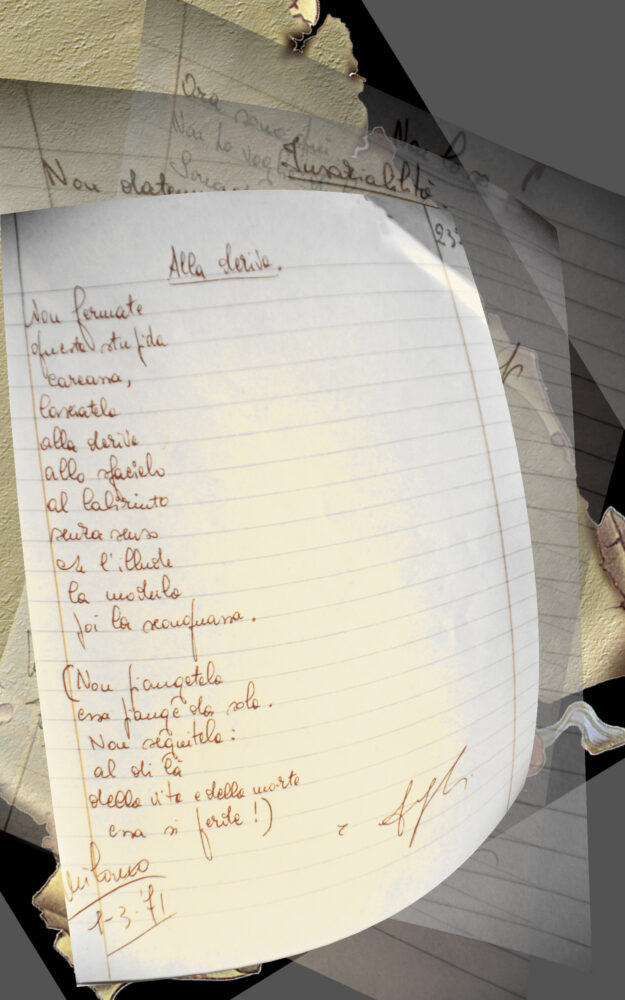 Ora sono qui
Non lo
Non lo so
Insaziabilità
Non datemi
232
Alla deriva.
Non fermate
questa stupida
carcassa,
lasciatela
alla deriva
allo sfacelo
al labirinto
senza senso
che l'illude
la modula
poi la sconquassa.
(Non piangetela
essa piange da sola.
Non seguitela:
al di là
della vita e della morte
essa si perde!)
Milano
1-3-71